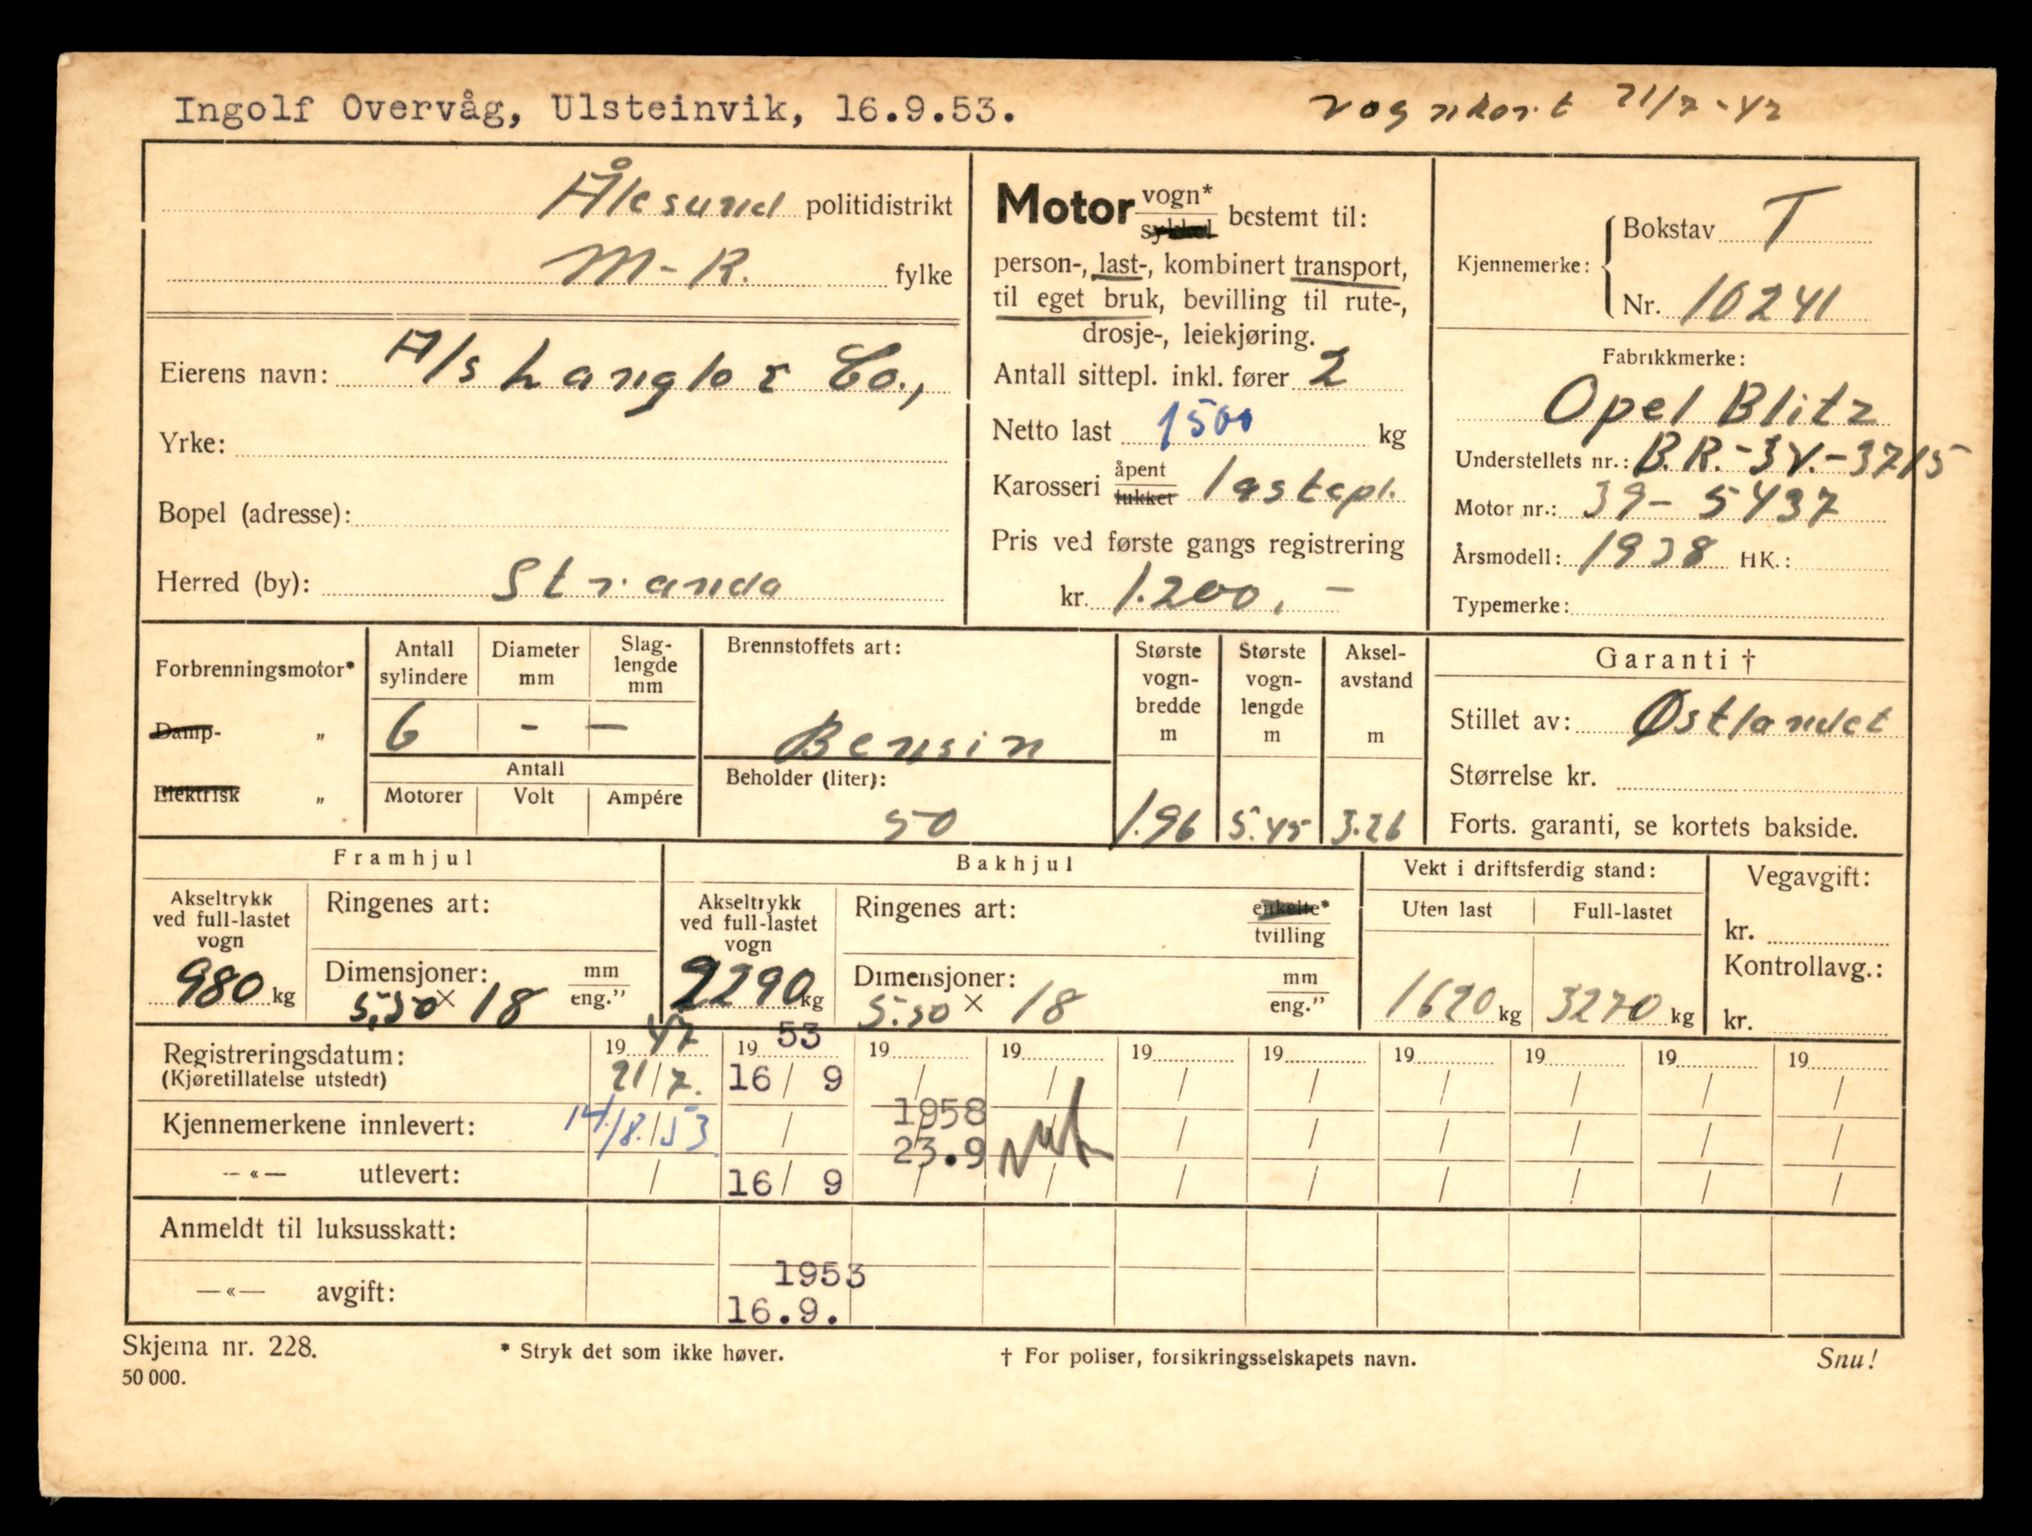 Ingolf Overvåg, Ulsteinvik, 16.9.53.
Vognkort 21/7-47
Ålesund politidistrikt
M-R. fylke
Eierens navn: A/s Langlo & Co.,
Yrke:
Bopel (adresse):
Herred (by): Stranda
Motor vogn* sykkel bestemt til:
person-, last-, kombinert transport,
til eget bruk, bevilling til rute-,
drosje-, leiekjøring.
Antall sittepl. inkl. fører 2
Netto last 1500 kg
Karosseri åpent lukket lastepl.
Pris ved første gangs registrering
kr. 1.200,-
Kjennemerke: Bokstav T
Nr. 10241
Fabrikkmerke:
Opel Blitz
Understellets nr.: B.R.-3V.-3715
Motor nr.: 39-5437
Årsmodell: 1938 HK.:
Typemerke:
Forbrenningsmotor*
Damp- "
Elektrisk "
Antall sylindere Diameter mm Slag-lengde mm
6 - -
Antall
Motorer Volt Ampére
Brennstoffets art:
Bensin
Beholder (liter):
50
Største vogn-bredde m
1.96
Største vogn-lengde m
5.45
Aksel-avstand m
3.26
Garanti †
Stillet av: Østlandet
Størrelse kr.
Forts. garanti, se kortets bakside.
Framhjul
Akseltrykk ved full-lastet vogn
980 kg
Ringenes art:
Dimensjoner: mm eng."
5,50 × 18
Bakhjul
Akseltrykk ved full-lastet vogn
2290 kg
Ringenes art: enkelte* tvilling
Dimensjoner: mm eng."
5.50 × 18
Vekt i driftsferdig stand:
Uten last Full-lastet
1620 kg 3270 kg
Vegavgift:
kr.
Kontrollavg.:
kr.
Registreringsdatum: 19 47 19 53 19 19 19 19 19 19 19 19
(Kjøretillatelse utstedt) 21/7. 16/ 9 / / / / / / / /
1958
Kjennemerkene innlevert: 14./8./53 / 23.9 / / / / / / /
-«- utlevert: / 16/ 9 / / / / / / / /
Anmeldt til luksusskatt:
1953
-«- avgift: 16.9.
Skjema nr. 228.
50 000.
* Stryk det som ikke høver.
† For poliser, forsikringsselskapets navn.
Snu!